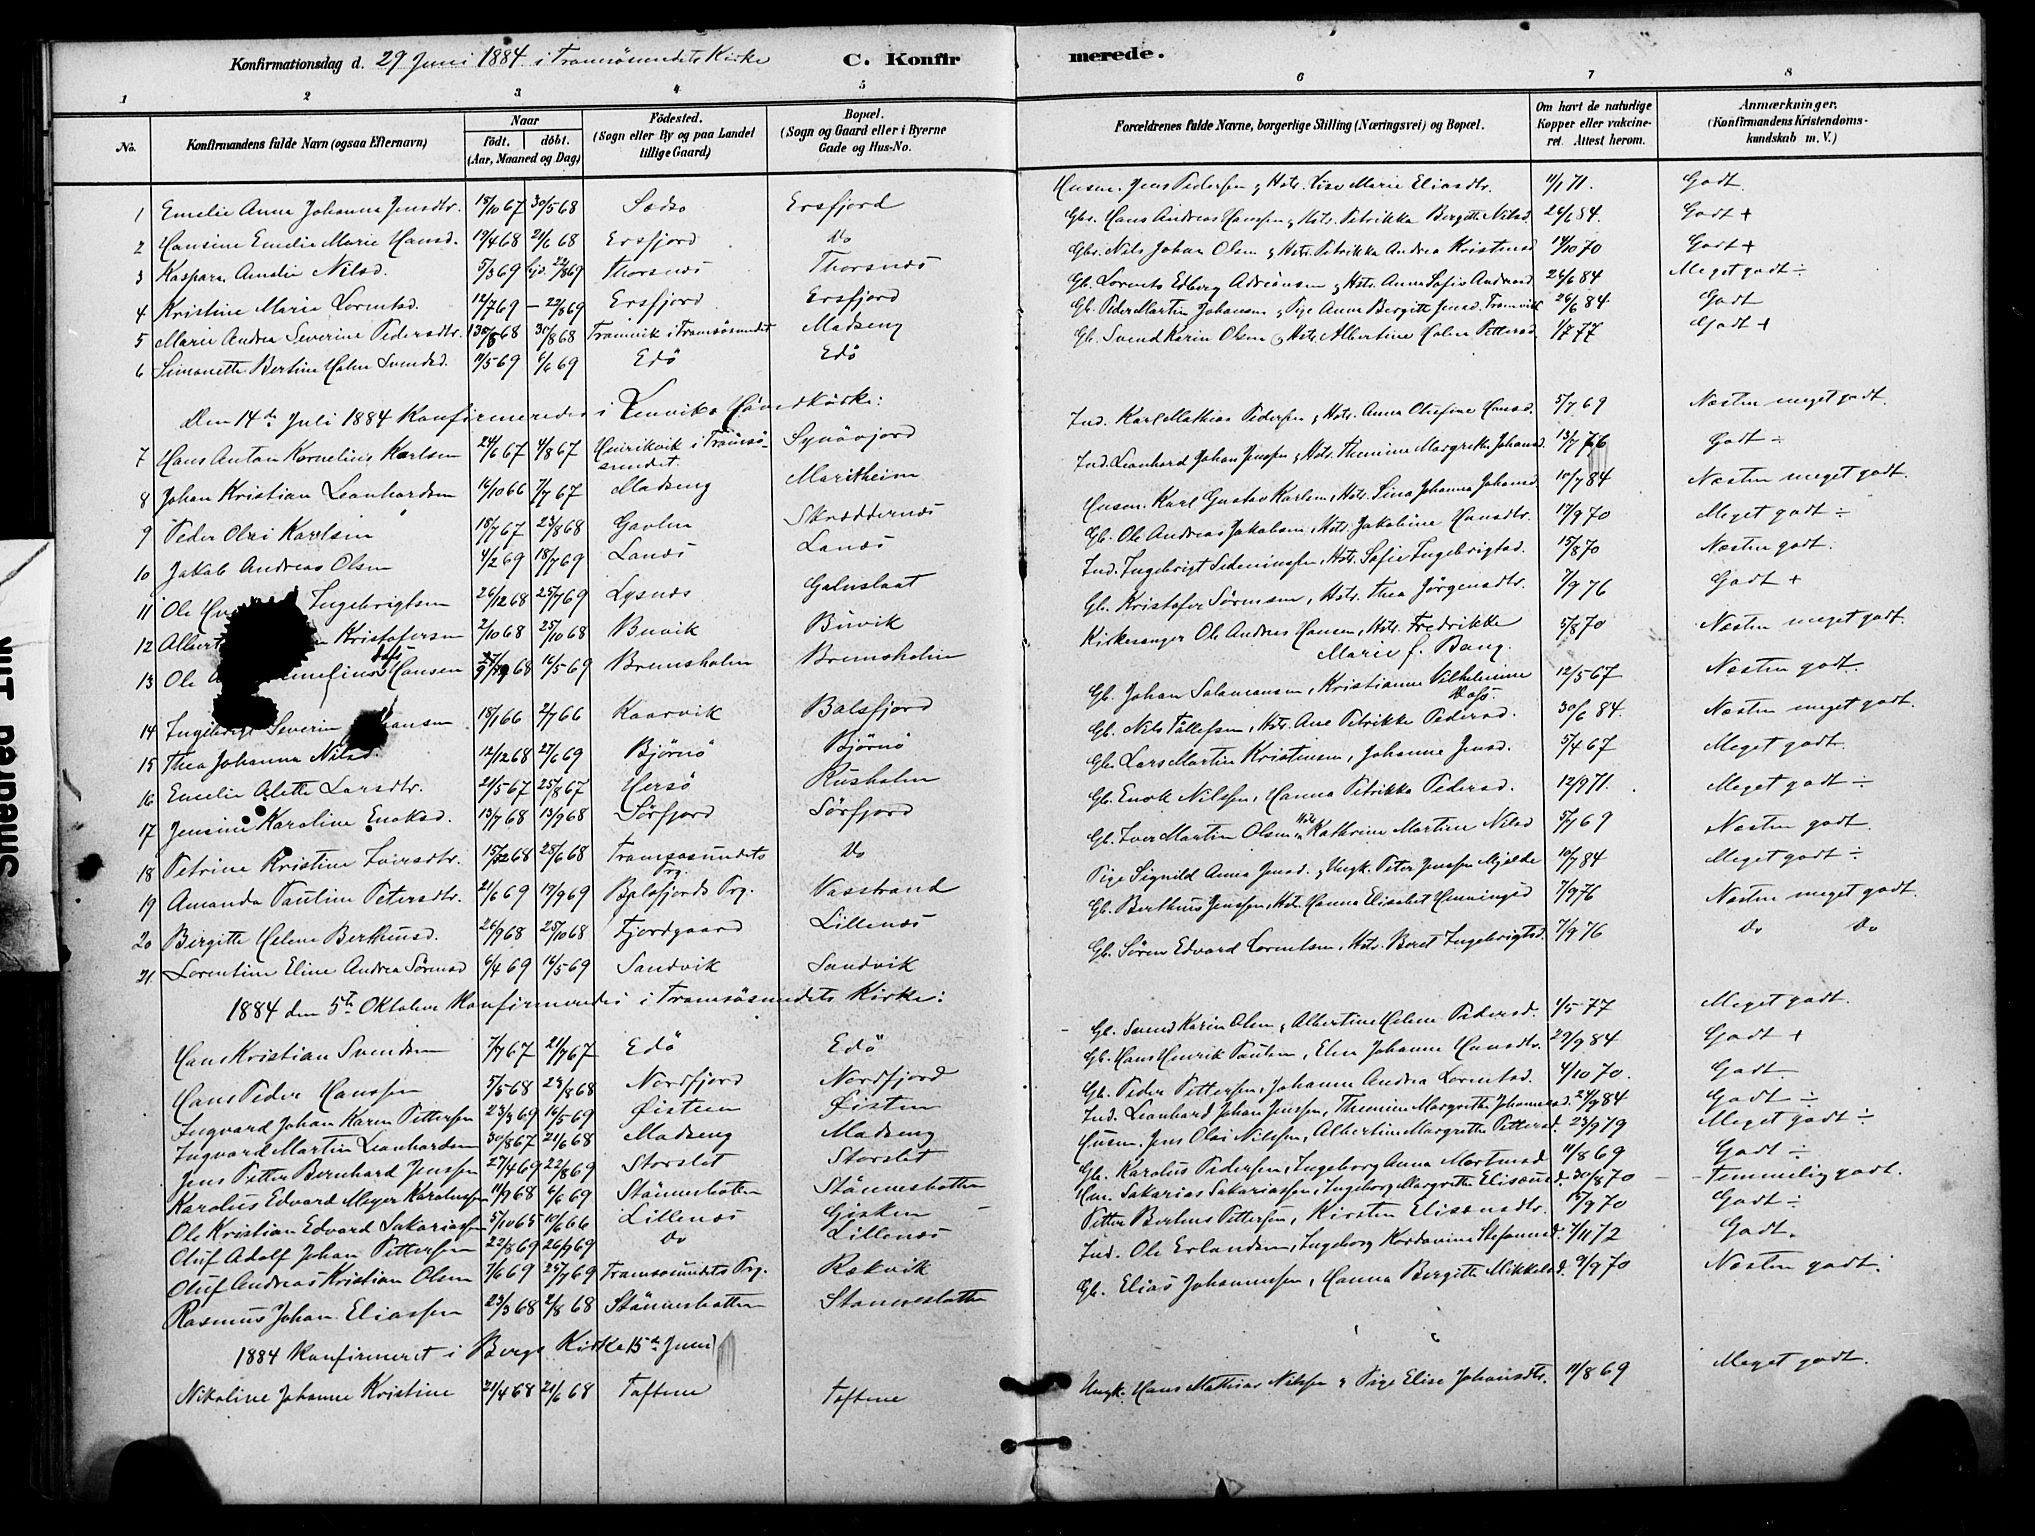 Konfirmationsdag d. 29 Juni 1884 i Tromsösundets Kirke C. Konfirmerede.
1 2 3 4 5 6 7 8
No. Konfirmandens fulde Navn (ogsaa Efternavn) Naar født. døbt. (Aar, Maaned og Dag) Fødested. (Sogn eller By og paa Landet tillige Gaard) Bopæl. (Sogn og Gaard eller i Byerne Gade og Hus-No. Forældrenes fulde Navne, borgerlige Stilling (Næringsvei) og Bopæl. Om havt de naturlige Kopper eller vakcineret. Attest herom. Anmærkninger. (Konfirmandens Kristendomskundskab m. V.)
1 Emelie Anna Johanna Jensdtr. 18/10 67 30/5 68 Ersfjord Husm. Jens Pedersen & Hstr. Marie Eliasdtr. 11/1 71. Godt
2 Hansine Emelie Marie Hansd. 19/4 68 21/6 68 Ersfjord Do Gbr. Hans Andreas Hanssen & Hstr. Petrikke Bergitte Nilsd. 24/6 84. Godt +
3 Kaspara Amelie Nilsd. 5/3 69 22/8 69 Thorsnæs Thorsnæs Gbr. Nils Johan Olsen & Hstr. Petrikka Andrea Kristensd. 14/10 70 Godt +
4 Kristine Marie Lorentsd. 12/7 69 – 22/8 69 Ersfjord Ersfjord Gb. Lorents Edberg Adriansen & Hstr. Anna Sofie Andersd 26/6 84 Meget godt ÷
5 Marie Andrea Severine Pedersdtr. 30/8 68 Tromvik i Tromsösundet Madseng Gb. Peder Martin Johansen & Pige Anne Bergitte Jensd. Tromvik 26/6 84 Godt
6 Simonette Bertine Holm Svendsd. 11/5 69 6/6 69 Edö Edö Gb. Svend Karin Olsen & Hstr. Albertine Helene Pettersd. 1/7 77 Godt +
Den 14de Juli 1884 Konfirmeredes i Lenviks Hovedkirke:
7 Hans Anton Kornelius Karlsen 24/6 67 4/8 67 Henrikvik i Tromsösundet. Ind. Karl Mathias Pedersen & Hstr. Anna Olufine Hansd. 5/7 69 Næsten meget godt.
8 Johan Kristian Leonhardsen 16/10 66 7/7 67 Madseng Maritheim Ind. Leonhard Johan Jenssen & Hstr. Themine Margrethe Johansd. 13/7 76 Godt ÷
9 Peder Olai Karlsen 18/7 67 23/8 68 Gavlen Skreddernæs Husm. Karl Gustav Karlsen, Hstr. Lina Johanna Johansd 10/7 84 Næsten meget godt.
10 Jakob Andreas Olsen 4/2 69 18/7 69 Lanæs Lanæs Gb. Ole Andreas Jakobsen, Hstr. Jakobine Hansdtr. 17/9 70 Meget godt ÷
11 Ole Ingebrigtsen 26/12 68 25/7 69 Lysnæs Galnslaat Ind. Ingebrigt Sedeniussen, Hstr. Sofie Ingebrigtsd. 15/8 70 Næsten godt.
12 Albert Kristofersen 2/10 68 25/10 68 Buvik Buvik Gb. Kristofer Sörensen, Hstr. Thea Jörgensdtr. 7/9 76 Godt +
13 Ole Hansen 68 16/5 69 Bremsholm Bremsholm Kirkesanger Ole Andreas Hansen, Hstr. Fredrikke Marie f. Bang. 5/8 70 Næsten meget godt.
14 Ingebrigt Severin Johansen 18/1 66 2/7 66 Kaarvik Balsfjord Gb. Johan Salomonsen, Kristianne Vilhelmine 12/5 67 Næsten godt.
15 Thea Johanna Nilsd. 12/12 68 27/6 69 Björnö Björnö Gb. Nils Tollefsen, Hstr. Ane Petrikke Pedersd. 30/6 84. Næsten meget godt.
16 Emelie Alette Larsdtr. 21/5 67 25/8 67 Hersö Rusholm Gb. Lars Martin Kristensen, Johanna Jensd. 5/4 67 Meget godt.
17 Jensine Karoline Enoksd. 13/7 68 13/9 68 Sörfjord Sörfjord Gb. Enok Nilssen, Hanna Petrikka Pedersd. 12/9 71. Meget godt ÷
18 Petrine Kristine Iversdtr. 15/2 68 28/6 68 Tromsösundets Prg. Do Gb. Iver Martin Olsen, Hstr. Kathrine Martine Nilsd 5/7 69 Næsten godt.
19 Amanda Pauline Petersdtr. 21/6 69 19/9 69 Balsfjords Prg. Vasstrand Pige Signild Anna Jensd. & Ungk. Peter Jenssen Mjelde 10/7 84 Meget godt ÷
20 Birgitte Helene Berthiusd. 26/9 68 25/10 68 Fjordgaard Lillenæs Gb. Berthius Jenssen, Hstr. Hanna Elisabet Henningsd 7/9 76 Næsten meget godt.
21. Lorentine Eline Andrea Sörensd 6/4 69 16/5 69 Sandvik Sandvik Gb. Sören Edvard Lorentsen, Hstr. Beret Ingebrigtsd. 7/9 76 Do Do
1884 den 5te Oktober Konfirmeredes i Tromsösundets Kirke:
Hans Kristian Svendsen 7/7 67 21/7 67 Edö Edö Gb. Svend Karin Olsen & Albertine Helene Pedersd. 1/5 77 Meget godt.
Hans Peder Hanssen 5/5 68 23/8 68 Nordfjord Nordfjord Gb. Hans Henrik Paulsen, Elen Johanna Hansdtr. 29/9 84 Godt +
Ingvard Johan Karen Pettersen 23/3 69 16/5 69 Øisteen Øisten Gb. Peder Pettersen, Johanna Andrea Lorentsd. 4/10 70. Godt
Ingvard Martin Leonhardsen 30/8 67 21/6 68 Madseng Madseng Ind. Leonhard Johan Jenssen, Themine Margrethe Johannesd. 24/9 84 Godt ÷
Jens Petter Bernhard Jenssen 27/4 69 22/8 69 Storslet Storslet Husm. Jens Olai Nilssen, Albertine Margrethe Pettersd. 23/9 79 Meget godt ÷
Karolus Edvard Meyer Karolussen 11/9 68 6/6 69 Stönnesbotten Stönnesbotten Gb. Karolus Pedersen, Ingeborg Anna Mortensd 11/8 69 Godt ÷
Ole Kristian Edvard Sakariassen 5/10 65 10/6 66 Lillenæs Gisken Sakarias Sakariassen, Ingeborg Margrethe Eliseusd. 30/8 70 – Temmelig godt.
Oluf Adolf Johan Pettersen 22/8 69 26/9 69 Do Lillenæs Petter Berhus Pettersen, Kirsten Eliseusdtr. 15/9 70 Godt ÷
Oluf Andreas Kristian Olsen 7/6 69 25/7 69 Tromsösundets Prg. Rekvik Ind. Ole Erlandsen, Ingeborg Kordavine Stefansd. 7/11 72 Godt.
Rasmus Johan Eliassen 23/3 68 2/8 68 Stönnesbotten Stønnesbotten Gb. Elias Johannessen, Hanna Bergitte Mikkelsd. 9/9 70 Næsten godt.
1884 konfirmeret i Bergs Kirke 15de Juni
Nikoline Johanne Kristine 21/4 68 21/6 68 Toftene Toftene Ungk. Hans Mathias Nilssen & Pige Elise Johansdtr. 11/8 69 Meget godt.